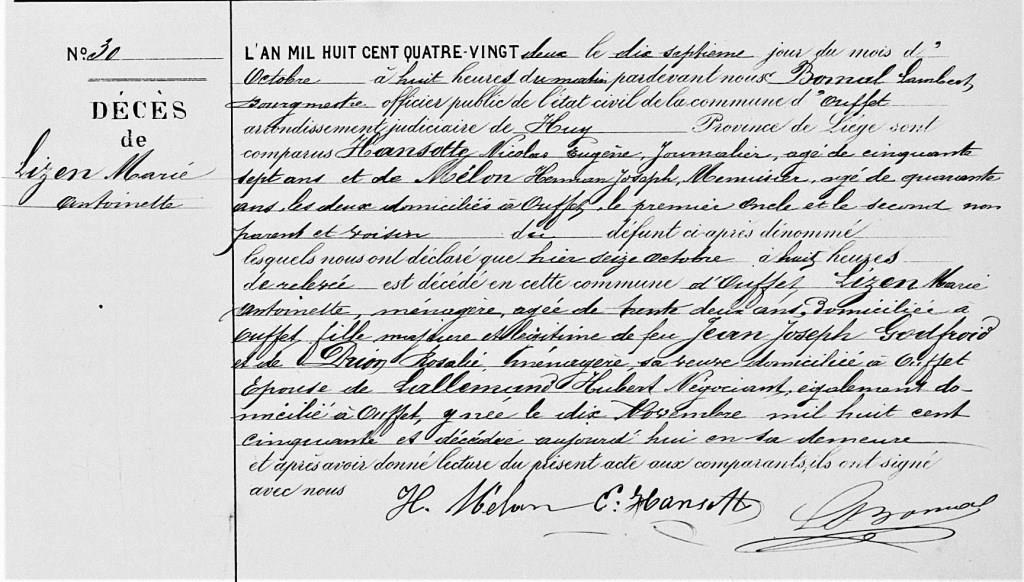 N.º 30
DÉCÈS
de
Lizen Marie
Antoinette
L'AN MIL HUIT CENT QUATRE-VINGT deux le dix septième jour du mois d'
Octobre à huit heures du matin pardevant nous Bomal Lambert
Bourgmestre officier public de l'état civil de la commune d'Ouffet
arrondissement judiciaire de Huy Province de Liége sont
comparus Hansotte Nicolas Eugène, Journalier, agé de cinquante
sept ans et de Mélon Herman Joseph, Menuisier, agé de quarante
ans, les deux domiciliés à Ouffet, le premier Oncle et le second non
parent et voisin de défunt ci-après dénommé
lesquels nous ont déclaré que hier seize Octobre à huit heures
de relevée est décédé en cette commune d'Ouffet Lizen Marie
Antoinette, ménagère, agée de trente deux ans, domiciliée à
Ouffet, fille majeure et légitime de feu Jean Joseph Godfroid
et de Drion Rosalie, ménagère, sa veuve domiciliée à Ouffet
Epouse de Lallemand Hubert Négociant, également do-
micilié à Ouffet, y née le dix Novembre mil huit cent
cinquante et décédée aujourd'hui en sa demeure
et après avoir donné lecture du présent acte aux comparants, ils ont signé
avec nous
H. Mélon E. Hansotte LBomal